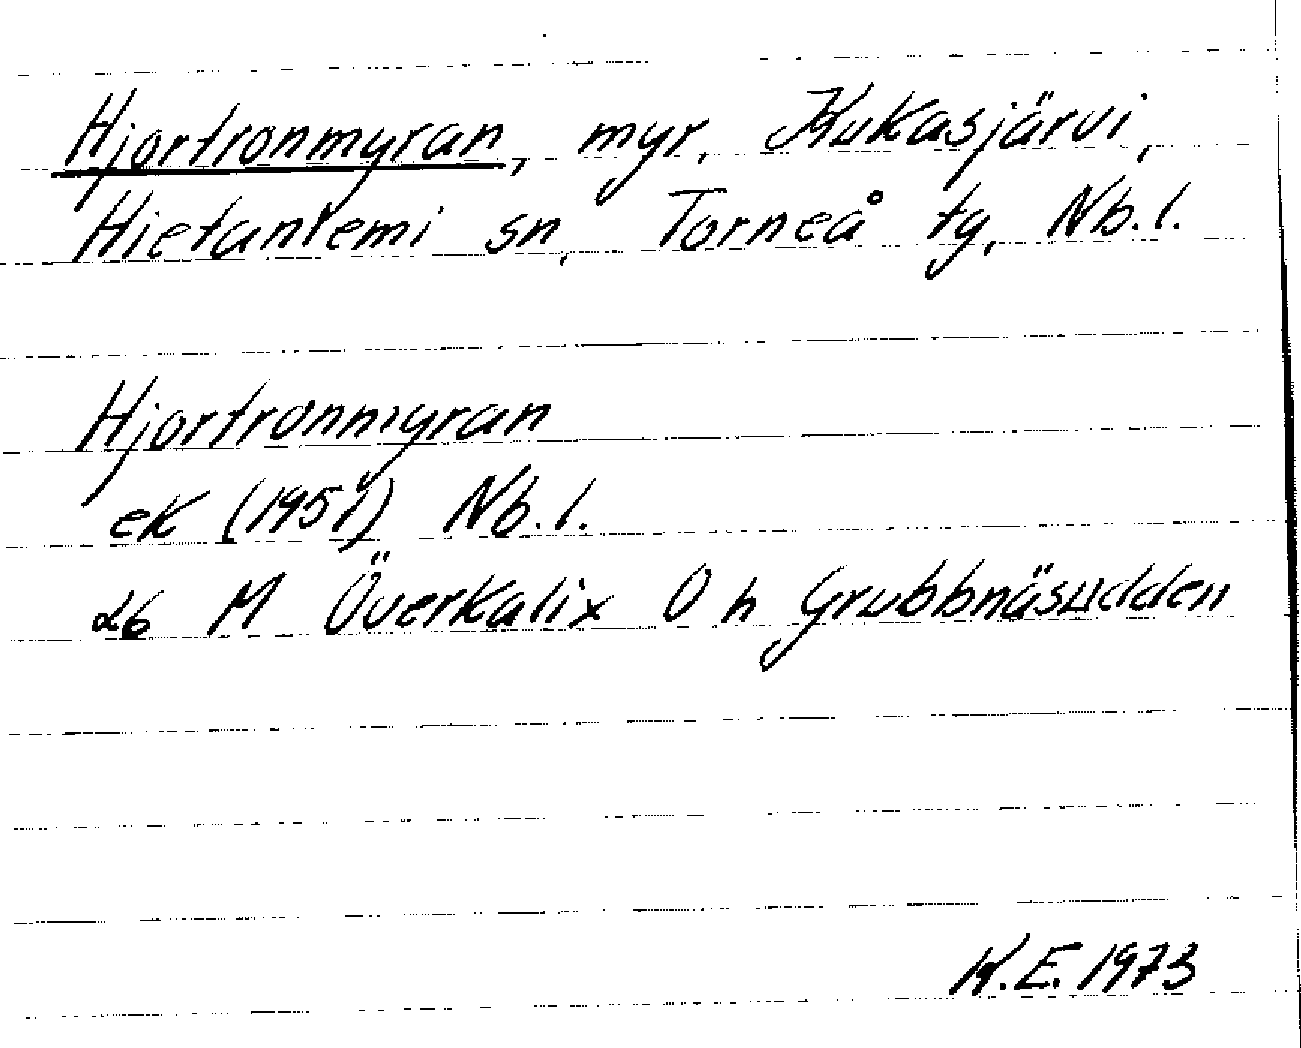 Hjortronmyran, myr, Kukasjärvi,
Hietaniemi sn, Torneå tg, Nb.l.
Hjortronmyran
ek (1957) Nb.l.
26 M Överkalix O h Grubbnäsudden
K.E. 1973